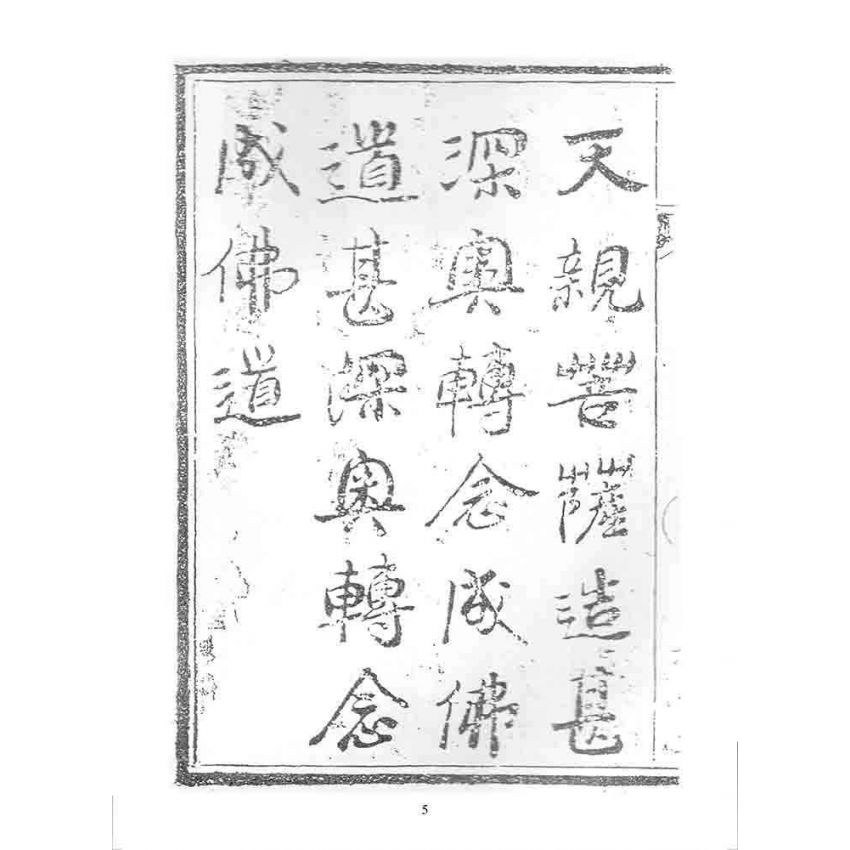 天親菩薩造甚
深奥轉念成佛
道甚深奥轉念
成佛道
5